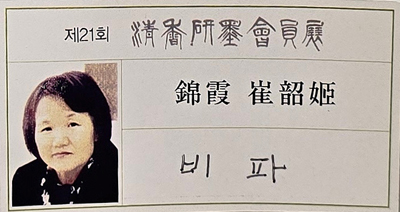 제21회 清香硏墨會員展
錦霞 崔韶姬
비 파